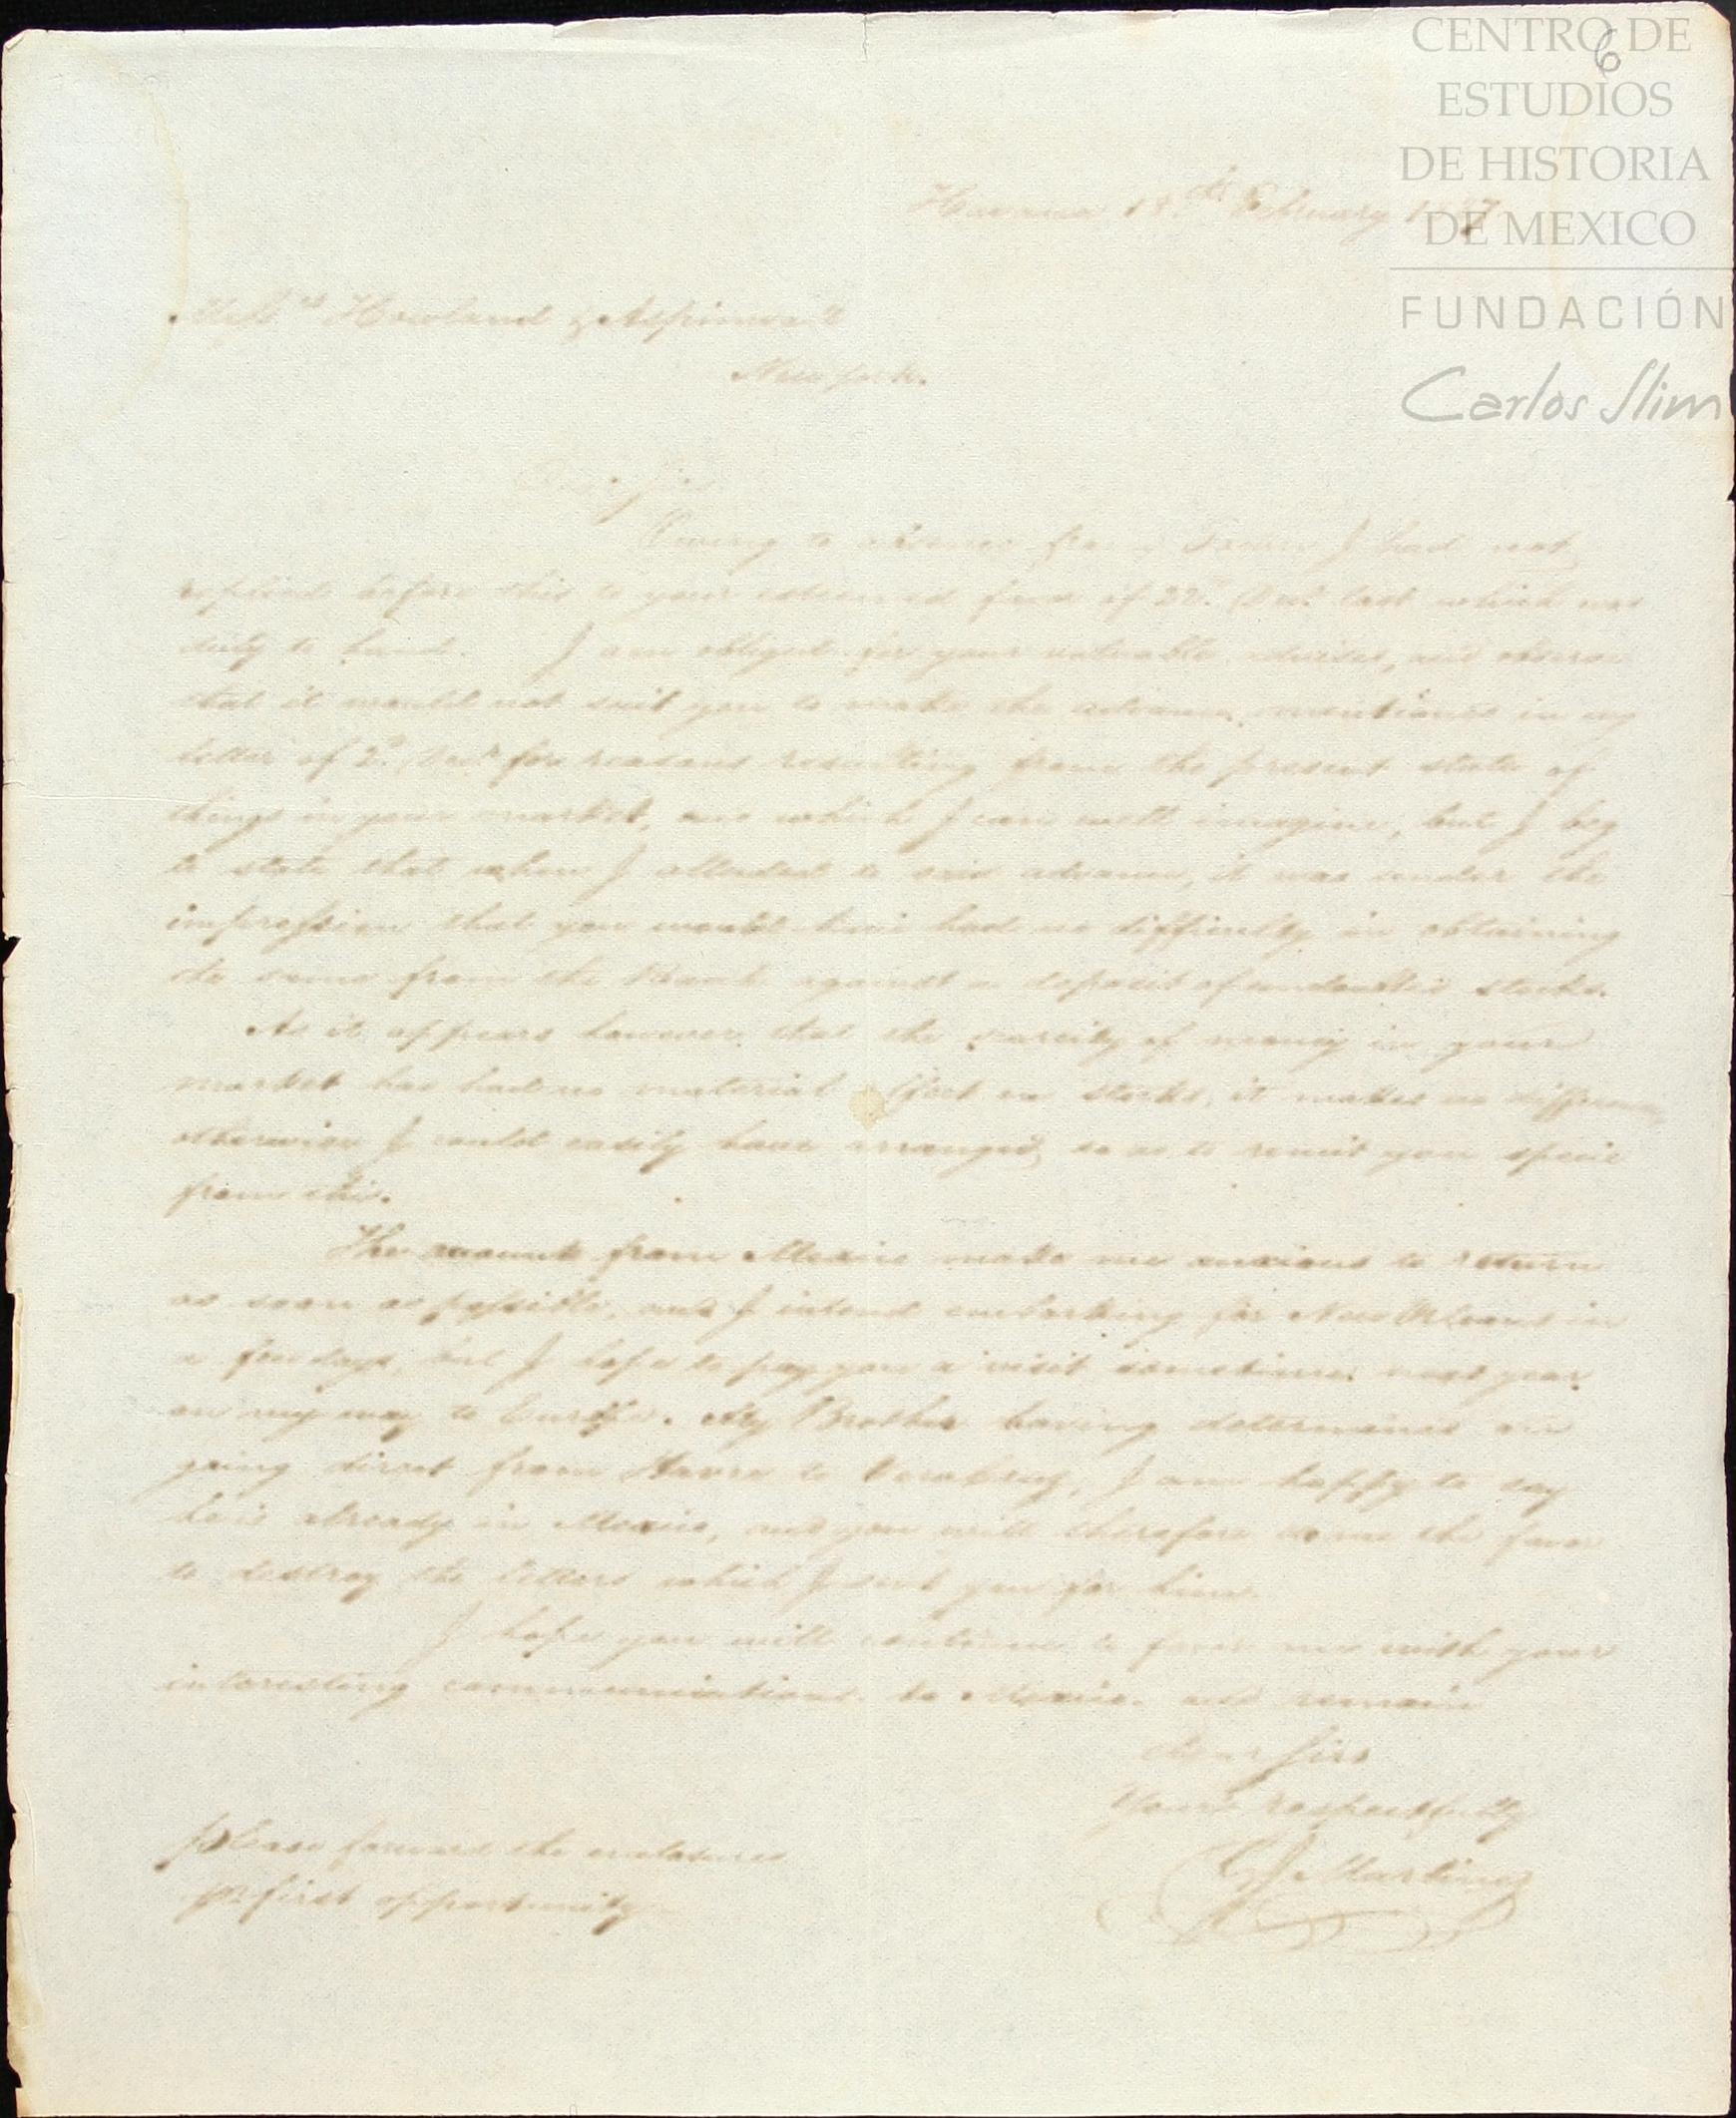 6
CENTRO DE
ESTUDIOS
DE HISTORIA
DE MEXICO
FUNDACIÓN
Carlos Slim
Havana 18th February
Messrs Howland & Aspinwall
New York.
Dear Sirs
Owing to absence from Town I had not
replied before this to your esteemed favor of 22d Decr last which was
duly to hand. I am obliged for your valuable advices, and observe
that it would not suit you to make the advance mentioned in my
letter of 2d Decr for reasons resulting from the present state of
things in your market, and which I can well imagine, but I beg
to state that when I alluded to said advance, it was under the
impression that you would have had no difficulty in obtaining
the same from the Bank against a deposit of undoubted stocks.
As it appears however that the scarcity of money in your
market has had no material effect on stocks, it makes no difference
otherwise I could easily have arranged so as to remit you specie
from this.
The accounts from Mexico make me anxious to return
as soon as possible, and I intend embarking for New Orleans in
a few days, but I hope to pay you a visit sometime next year
on my way to Europe. My Brother having determined on
going direct from Havre to Veracruz, I am happy to say
he is already in Mexico, and you will therefore do me the favor
to destroy the letters which I sent you for him.
I hope you will continue to favor me with your
interesting communications to Mexico and remain
Dear Sirs
Yours respectfully
Martinez
please forward the enclosures
pr first opportunity